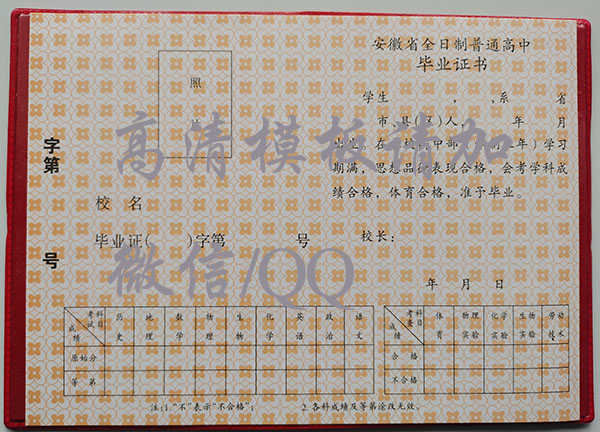 安徽省全日制普通高中
毕业证书
照
片
学生 , ,系 省
市、县(区)人, 年 月
期满,思想品德表现合格,会考学科成
绩合格,体育合格,准予毕业。
校长:
年 月 日
字第
号
校 名
毕业证( )字第 号
高清模板请加
微信/QQ
考试 科目 成绩 历史 地理 数学 物理 生物 化学 英语 政治 语文
原始分
等 第
考查 科目 成绩 体育 物理实验 化学实验 生物实验 劳动技术
合 格
不合格
注:1."不"表示"不合格"; 2.各科成绩及等第涂改无效。